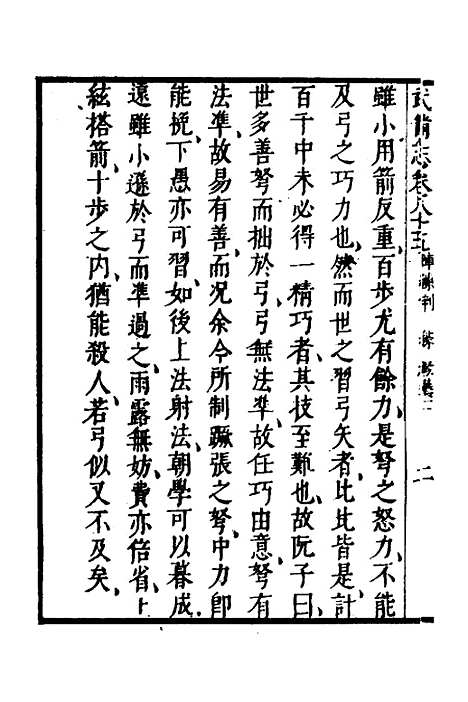 武備志卷八十五 陣練制 練 教藝二 二
雖小用箭反重百步尤有餘力是弩之怒力不能
及弓之巧力也然而世之習弓矢者比比皆是計
百千中未必得一精巧者其技至難也故阮子曰
世多善弩而拙於弓弓無法準故任巧由意弩有
法準故易有善而况余今所制蹶張之弩中力卽
能挽下愚亦可習如後上法射法朝學可以暮成
遠雖小遜於弓而準過之雨露無妨費亦倍省上
絃搭箭十步之内猶能殺人若弓似又不及矣